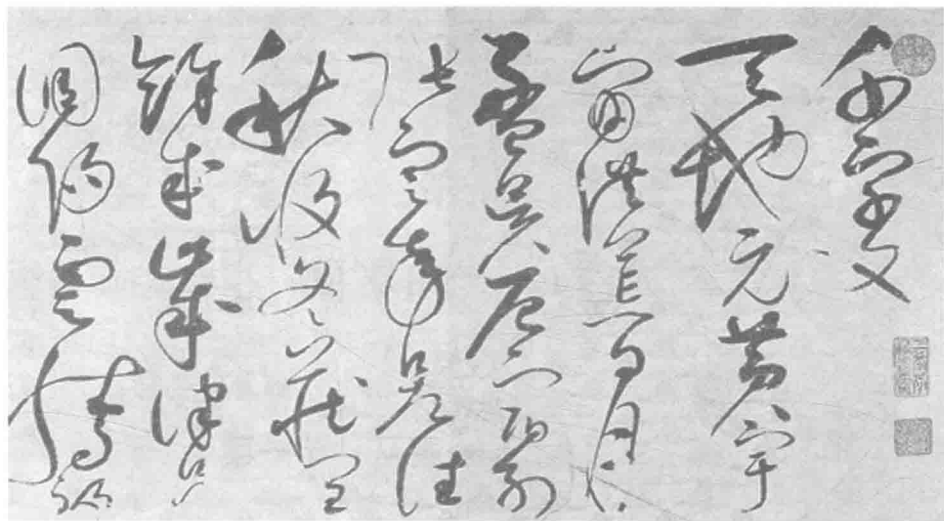 千字文
天地元黄宇
宙洪荒日月
盈昃辰宿列
張寒來暑往
秋收冬藏閏
餘成歲律呂
調陽雲騰致